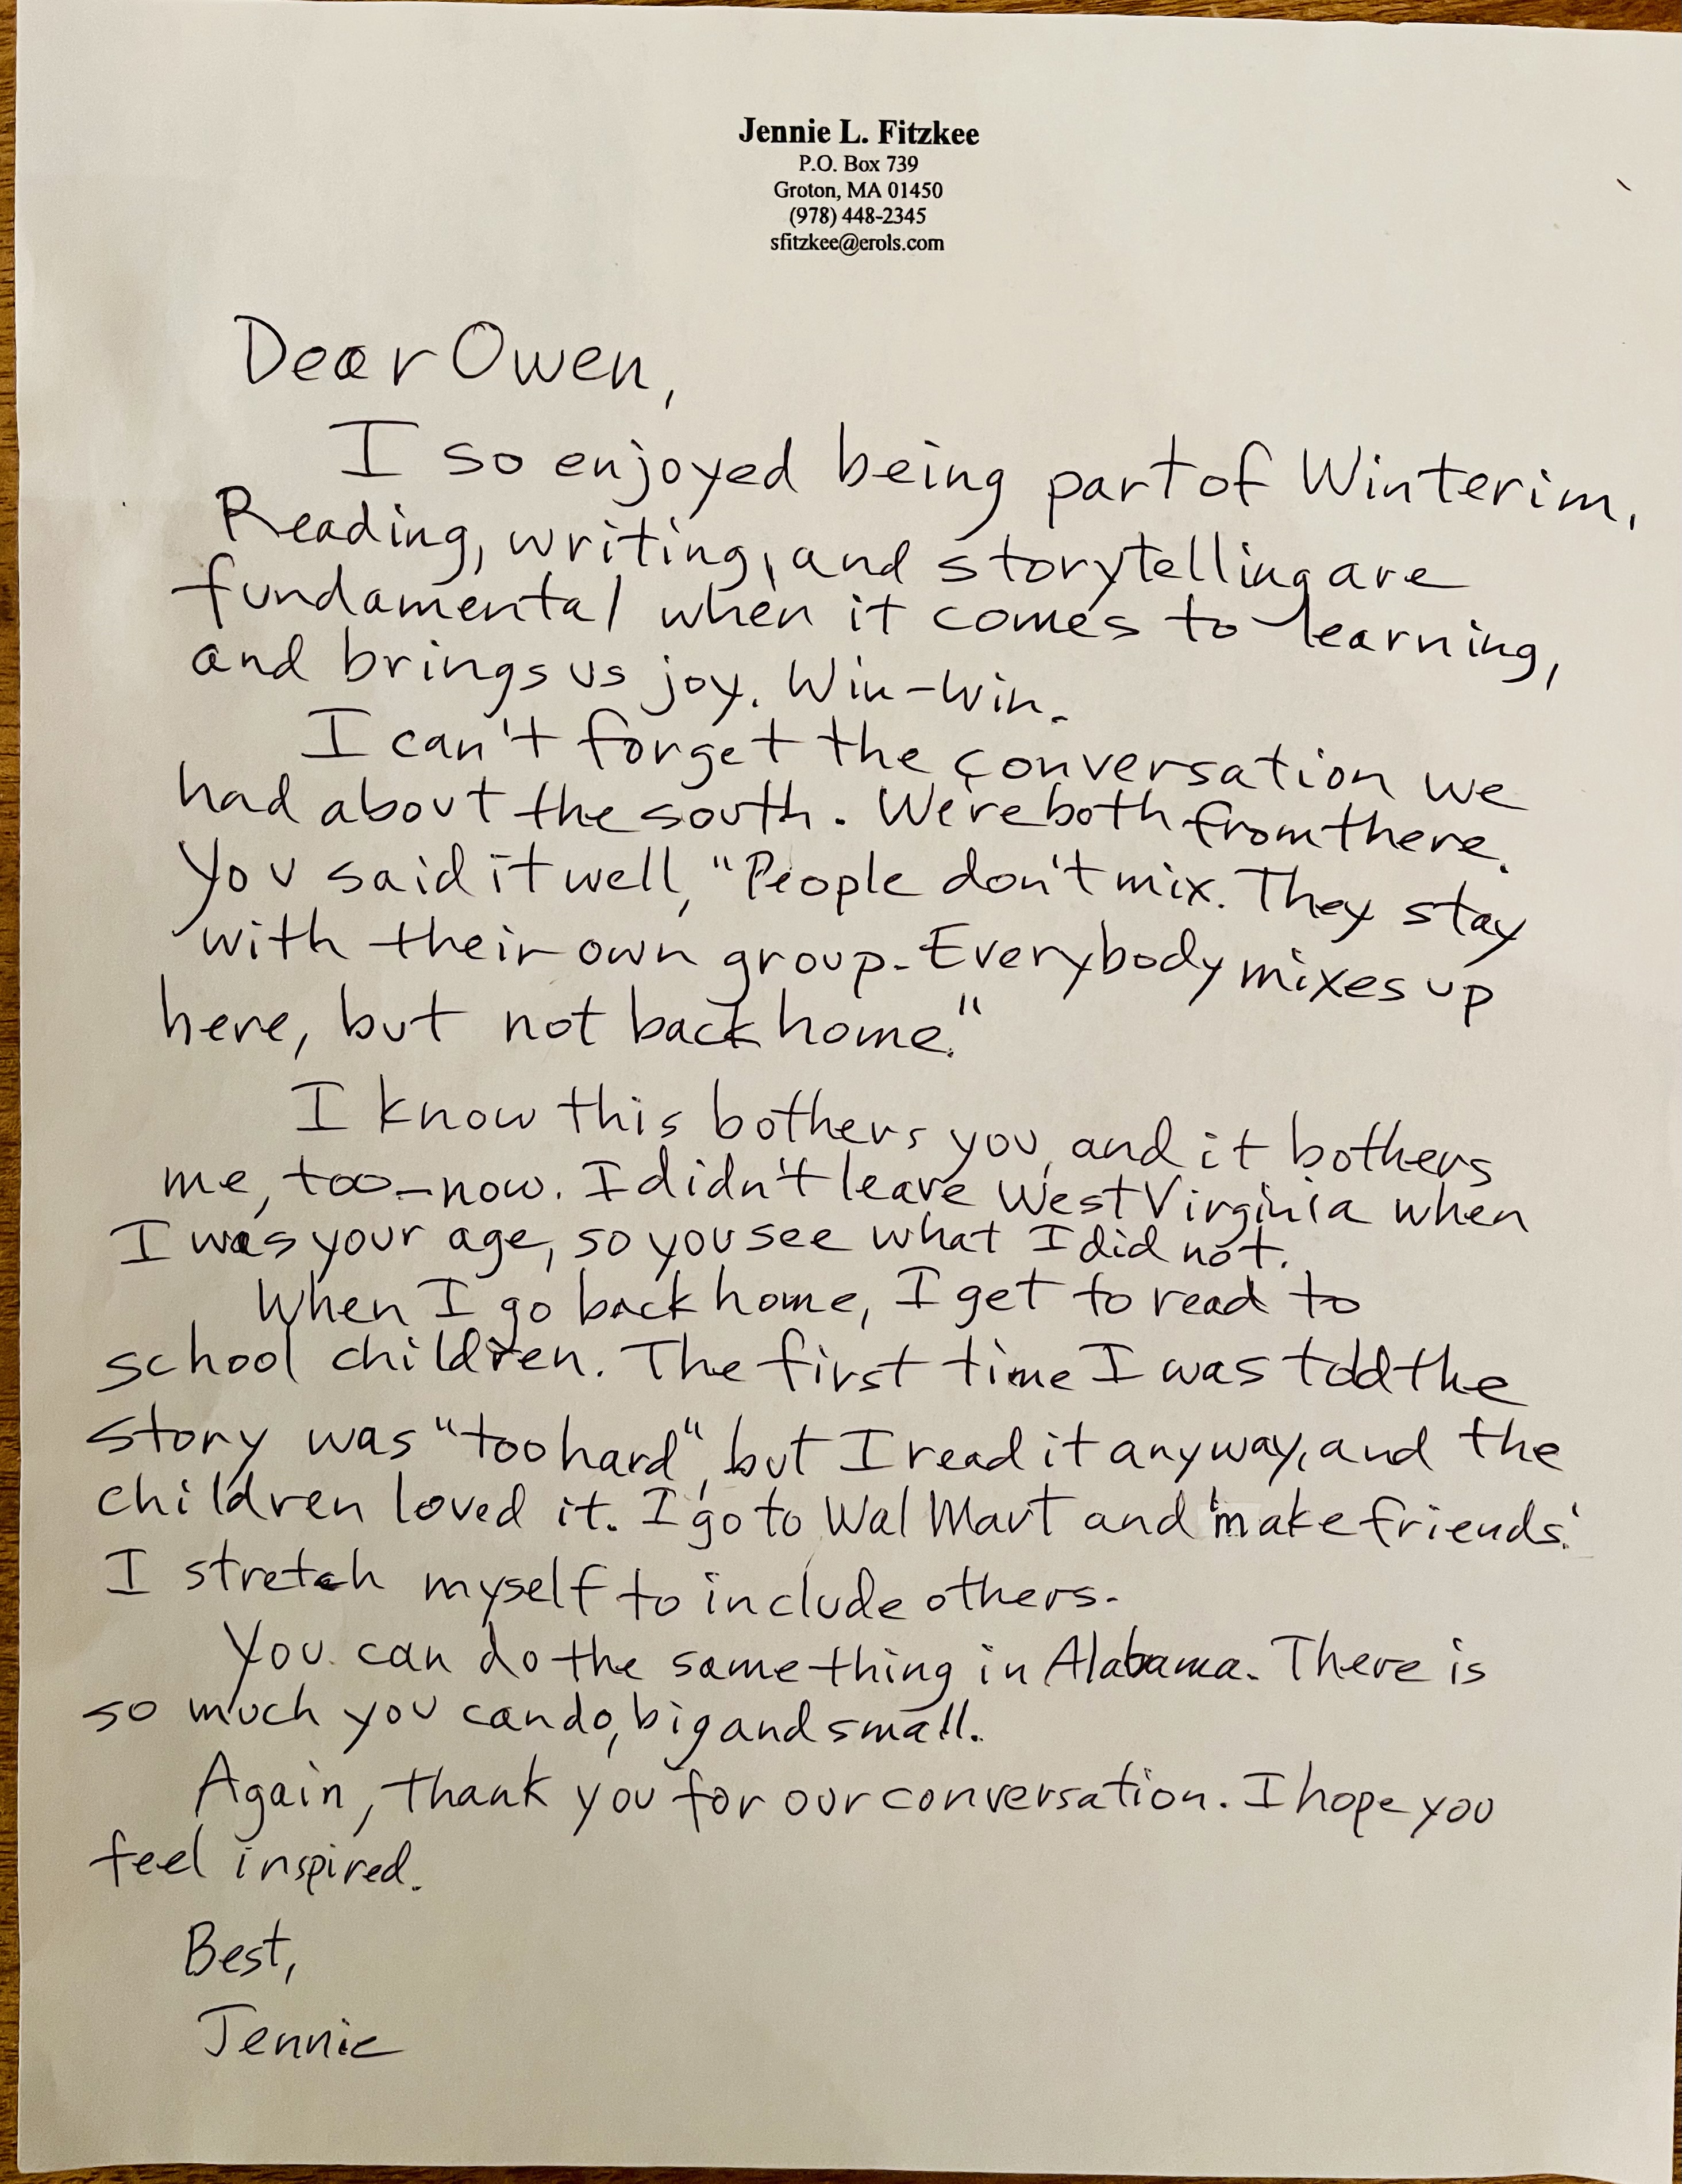 Jennie L. Fitzkee
P.O. Box 739
Groton, MA 01450
(978) 448-2345
sfitzkee@erols.com
Dear Owen,
I so enjoyed being part of Winterim.
Reading, writing, and storytelling are
fundamental when it comes to learning,
and brings us joy. Win-win.
I can't forget the conversation we
had about the south. We're both from there.
You said it well, "People don't mix. They stay
with their own group. Everybody mixes up
here, but not back home."
I know this bothers you, and it bothers
me, too-now. I didn't leave West Virginia when
I was your age, so you see what I did not.
When I go back home, I get to read to
school children. The first time I was told the
story was "too hard", but I read it anyway, and the
children loved it. I go to Wal Mart and 'make friends.'
I stretch myself to include others.
You can do the same thing in Alabama. There is
so much you can do, big and small.
Again, thank you for our conversation. I hope you
feel inspired.
Best,
Jennie